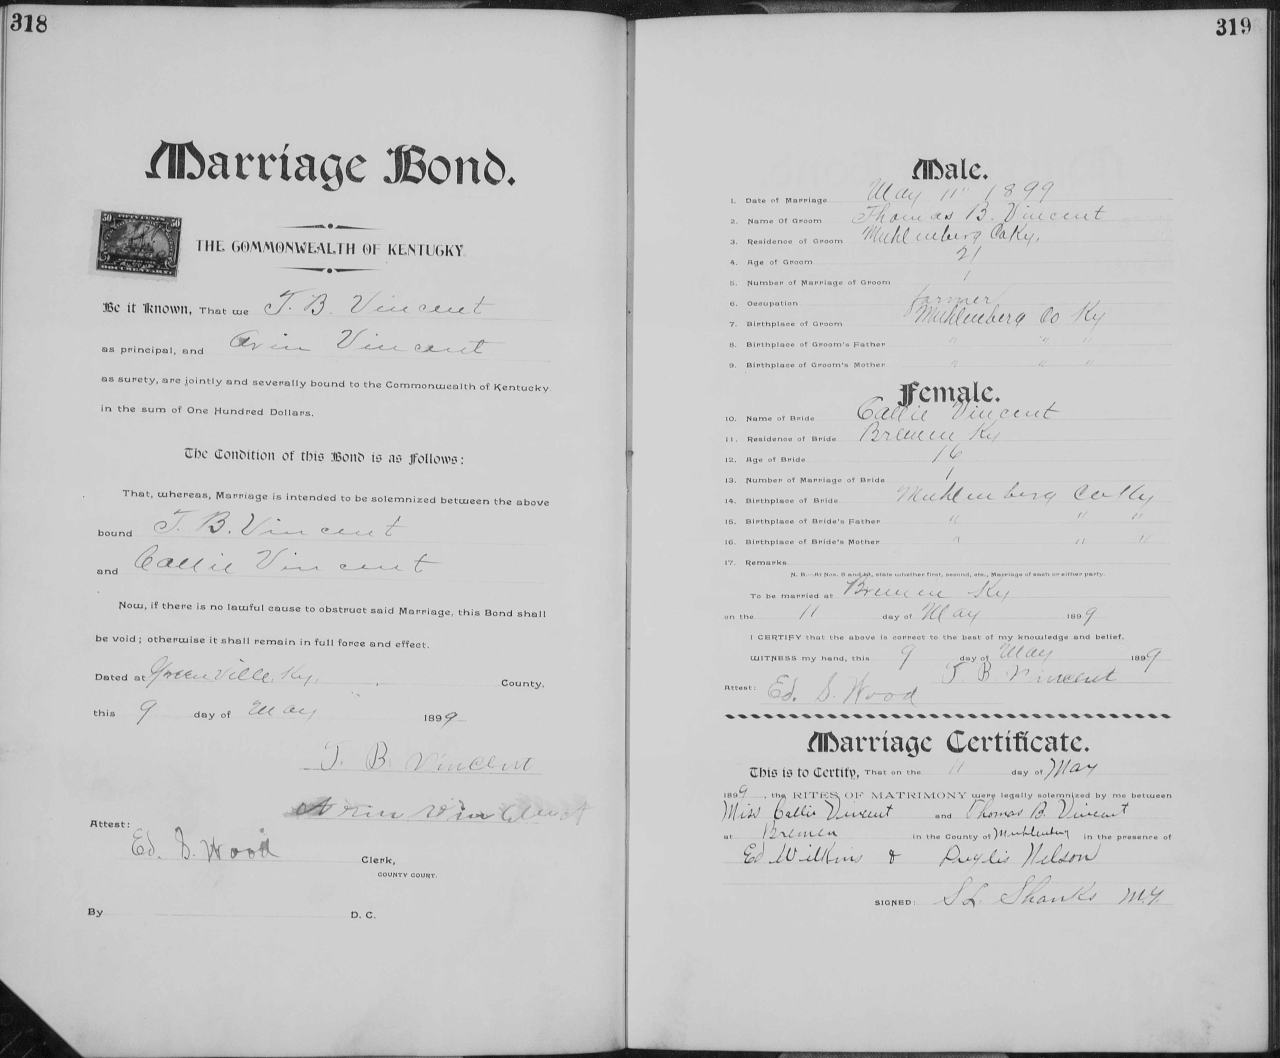 318
Marriage Bond.
50 FIFTY CENTS 50
DOCUMENTARY
THE COMMONWEALTH OF KENTUCKY.
Be it Known, That we T. B. Vincent
as principal, and Arin Vincent
as surety, are jointly and severally bound to the Commonwealth of Kentucky
in the sum of One Hundred Dollars.
The Condition of this Bond is as Follows:
That, whereas, Marriage is intended to be solemnized between the above
bound T. B. Vincent
and Callie Vincent
Now, if there is no lawful cause to obstruct said Marriage, this Bond shall
be void; otherwise it shall remain in full force and effect.
Dated at Greenville, Ky. County,
this 9 day of May 1899
T. B. Vincent
Arin Vincent
Attest:
Ed. S. Wood Clerk,
COUNTY COURT.
By D. C.
319
Male.
1. Date of Marriage May 11" 1899
2. Name Of Groom Thomas B. Vincent
3. Residence of Groom Muhlenberg Co Ky.
4. Age of Groom 21
5. Number of Marriage of Groom 1
6. Occupation farmer
7. Birthplace of Groom Muhlenberg Co Ky
8. Birthplace of Groom's Father " " "
9. Birthplace of Groom's Mother " " "
Female.
10. Name of Bride Callie Vincent
11. Residence of Bride Bremen Ky
12. Age of Bride 16
13. Number of Marriage of Bride 1
14. Birthplace of Bride Muhlenberg Co Ky
15. Birthplace of Bride's Father " " "
16. Birthplace of Bride's Mother " " "
17. Remarks
N. B.—At Nos. 5 and 13, state whether first, second, etc., Marriage of each or either party.
To be married at Bremen Ky
on the 11 day of May 1899
I CERTIFY that the above is correct to the best of my knowledge and belief.
WITNESS my hand, this 9 day of May 1899
T B Vincent
Attest: Ed. S. Wood
Marriage Certificate.
This is to Certify, That on the 11 day of May
1899, the RITES OF MATRIMONY were legally solemnized by me between
Miss Callie Vincent and Thomas B. Vincent
at Bremen in the County of Muhlenberg in the presence of
Ed Wilkins & Nelson
SIGNED: S L Shanks